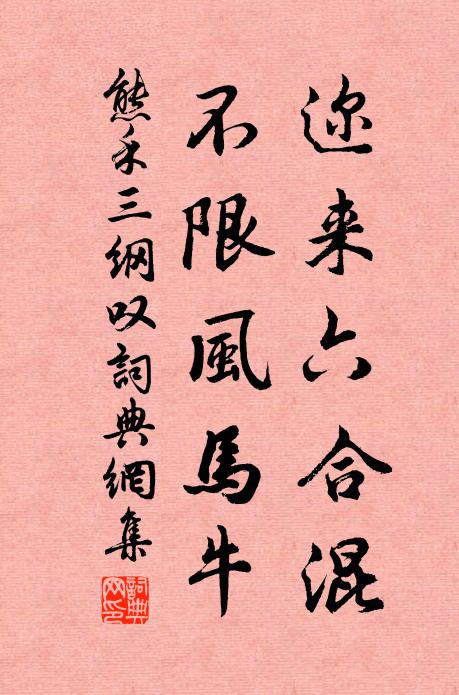 迩来六合混
不限風馬牛
熊禾三綱叹詞典網集
詞典网印